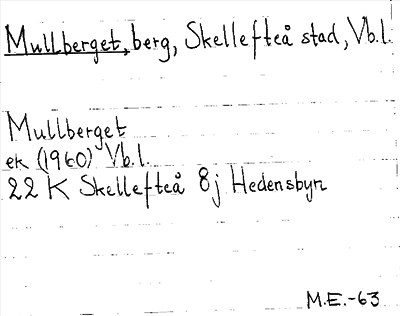 Mullberget, berg, Skellefteå stad, Vb.l.
Mullberget
ek (1960) Vb.l.
22 K Skellefteå 8j Hedensbyn
M.E.-63